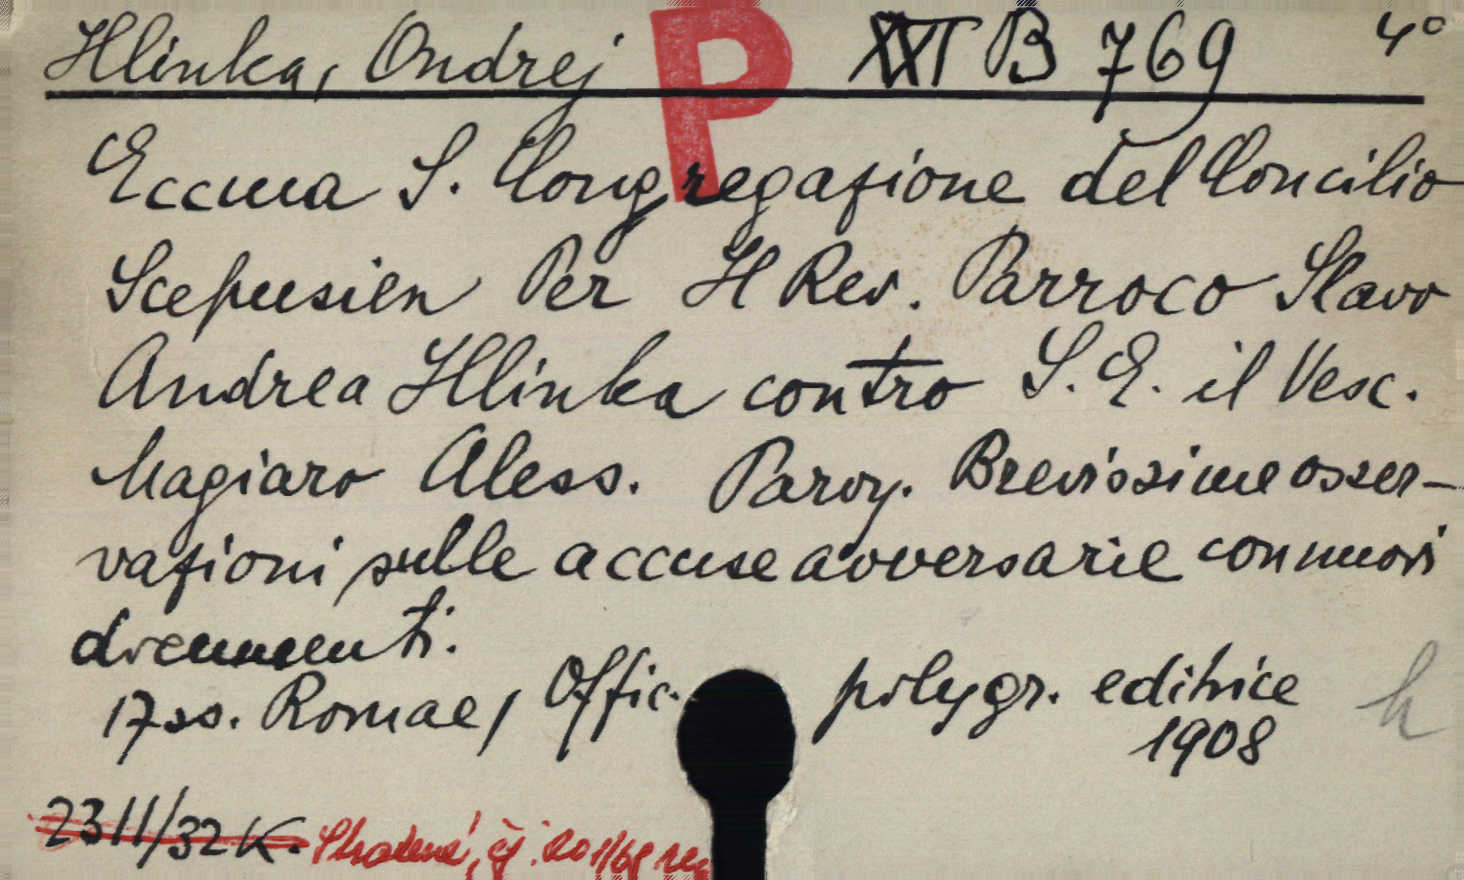 Hlinka, Ondrej P XXI B 769 4°
Eccma S. Congregazione del Concilio
Scepusien Per Il Rev. Parroco Slavo
Andrea Hlinka contro S. E. il Vesc.
Magiaro Aless. Parvy. Brevissime osser-
vazioni sulle accuse avversarie con nuovi
documenti.
17 ss. Romae, Offic. polygr. editrice
1908
h
2311/32 K. Ztratené, čj. 201/68